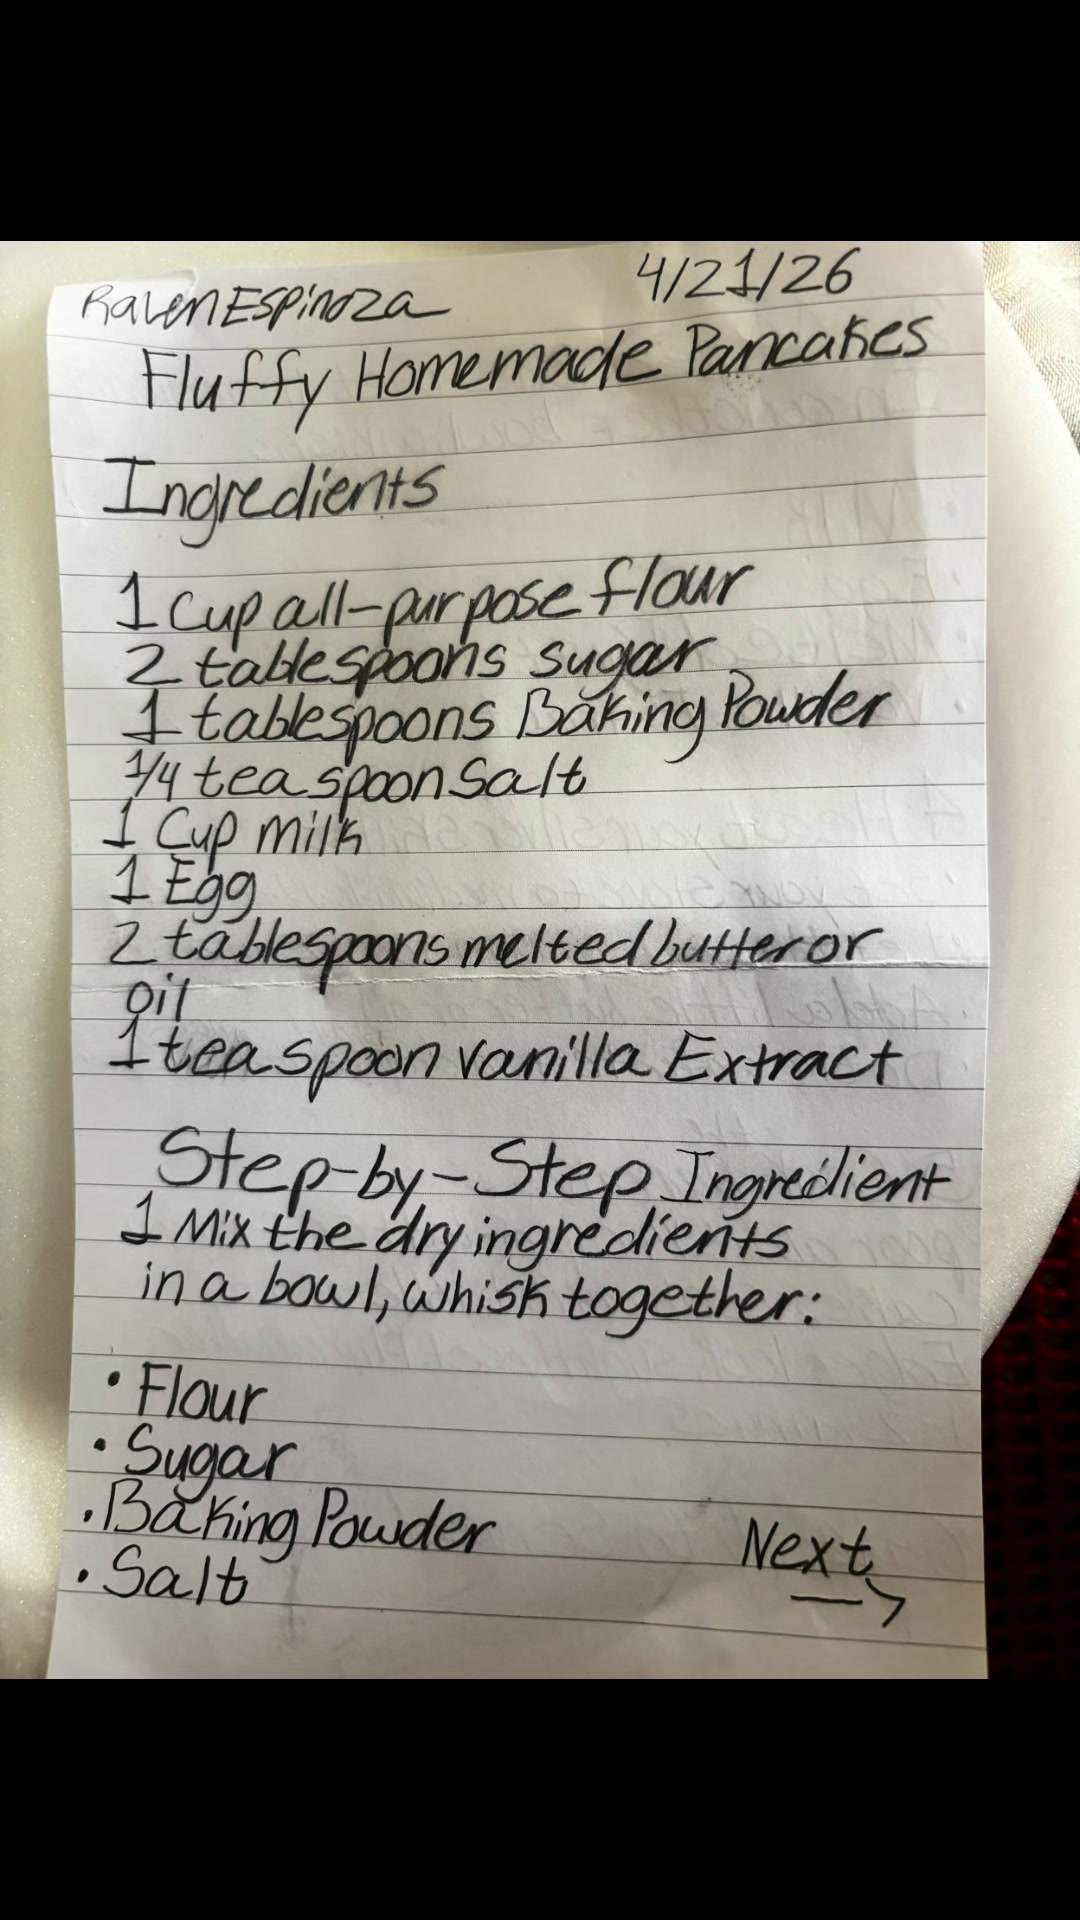 Raven Espinoza 4/21/26
Fluffy Homemade Pancakes
Ingredients
1 Cup all-purpose flour
2 tablespoons sugar
1 tablespoons Baking Powder
1/4 teaspoon Salt
1 Cup milk
1 Egg
2 tablespoons melted butter or
oil
1 teaspoon vanilla Extract
Step-by-Step Ingredient
1 Mix the dry ingredients
in a bowl, whisk together:
• Flour
• Sugar
• Baking Powder
• Salt
Next
→